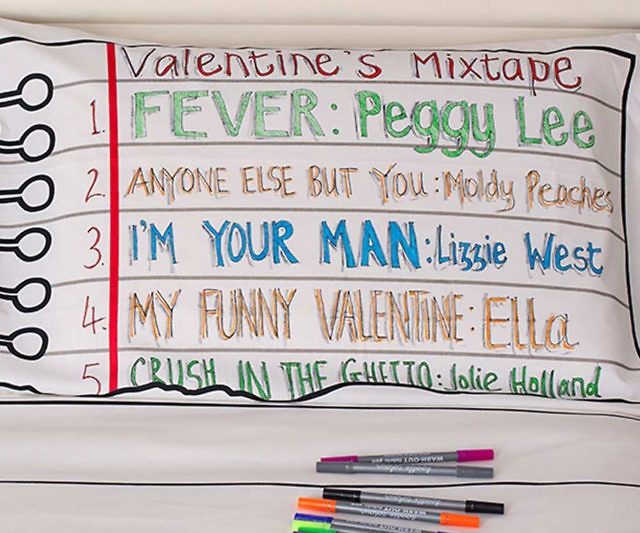 Valentine's Mixtape
1. FEVER: Peggy Lee
2. ANYONE ELSE BUT YOU: Moldy Peaches
3. I'M YOUR MAN: Lizzie West
4. MY FUNNY VALENTINE: Ella
5 CRUSH IN THE GHETTO: Jolie Holland
WASH-OUT fabric pen